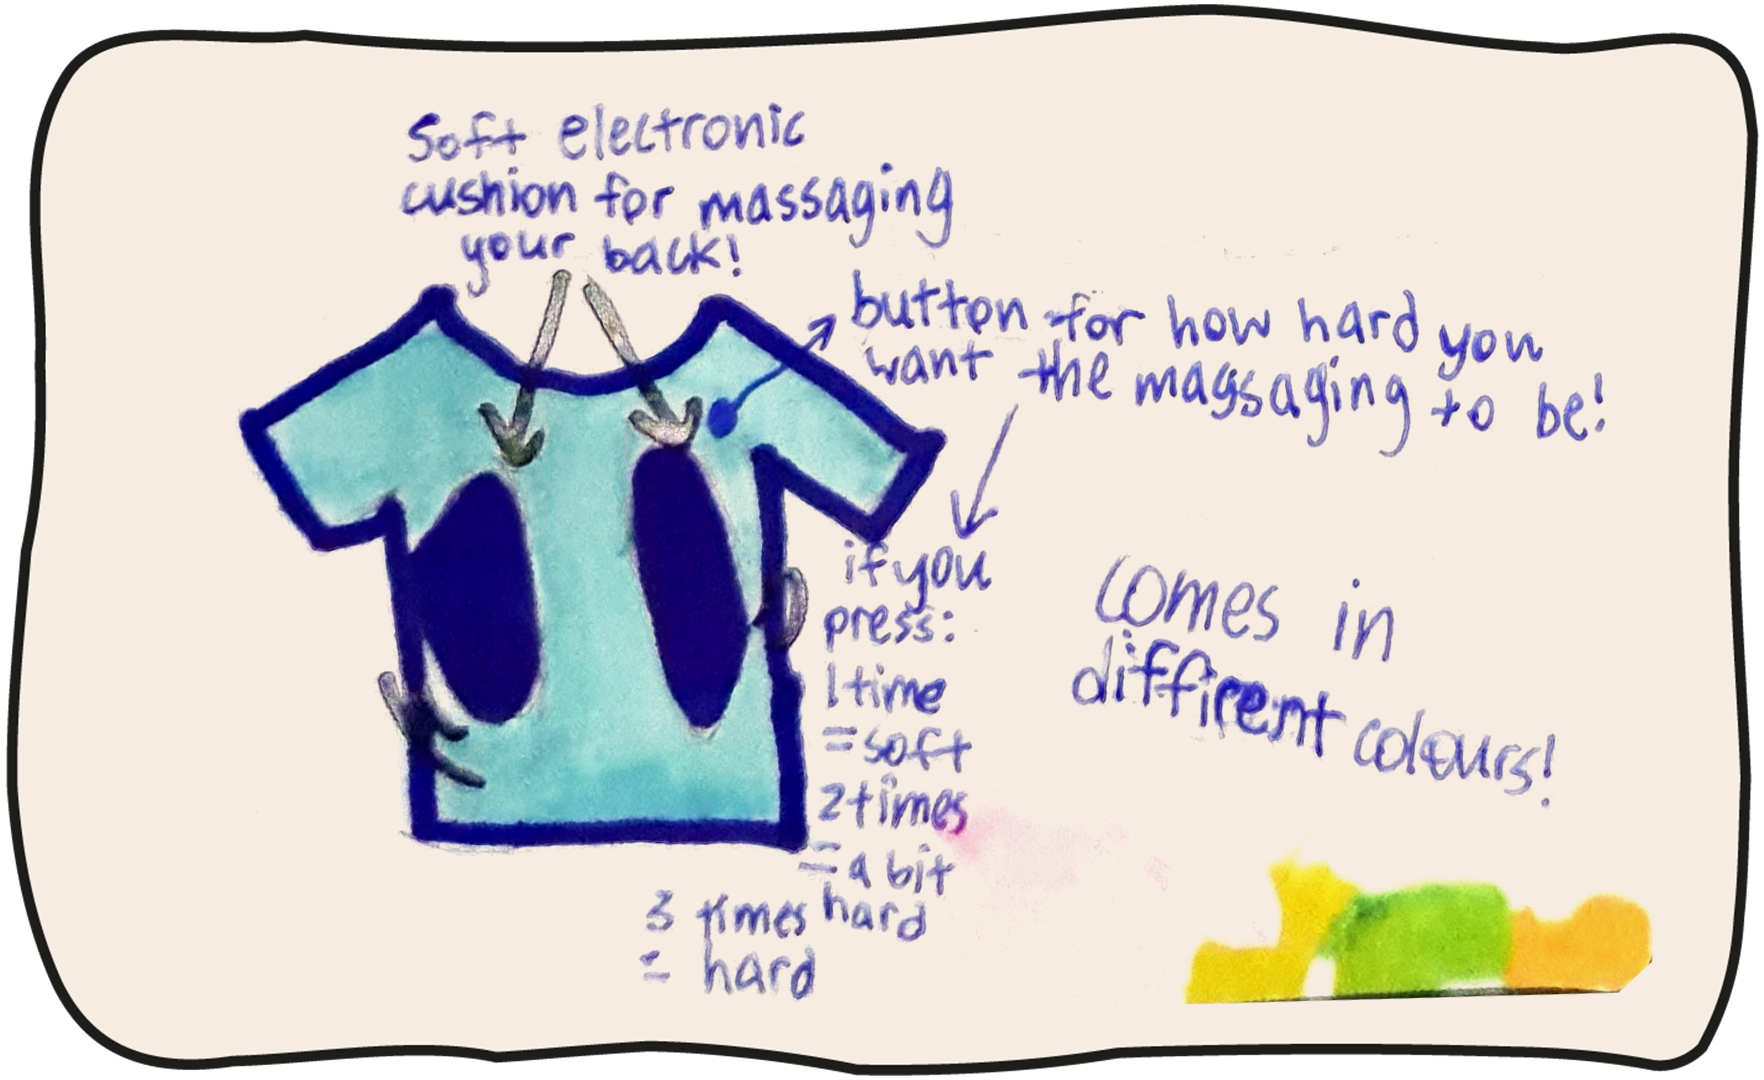 Soft electronic
cushion for massaging
your back!
button for how hard you
want the magssaging to be!
if you
press:
1 time
=soft
2 times
= a bit
hard
3 times
= hard
comes in
diffirent colours!